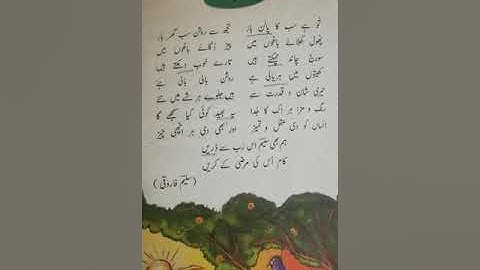 تو ہے سب کا پالن ہار تجھ سے روشن سب گھر بار
پھول کھلائے باغوں میں پیڑ اگائے باغوں میں
سورج چاند چمکتے ہیں تارے خوب دمکتے ہیں
کھیتوں میں ہریالی ہے روشن بالی بالی ہے
تیری شان و قدرت سے ہیں جلوے ہر شے میں نئے
رنگ و مزا ہر اک کا جدا یہ بھید کوئی کیا سمجھے گا
انساں کو دی عقل و تمیز اور بھی دی ہر اچھی چیز
ہم بھی سلیم اس رب سے ڈریں
کام اس کی مرضی کے کریں
(سلیم فاروقی)